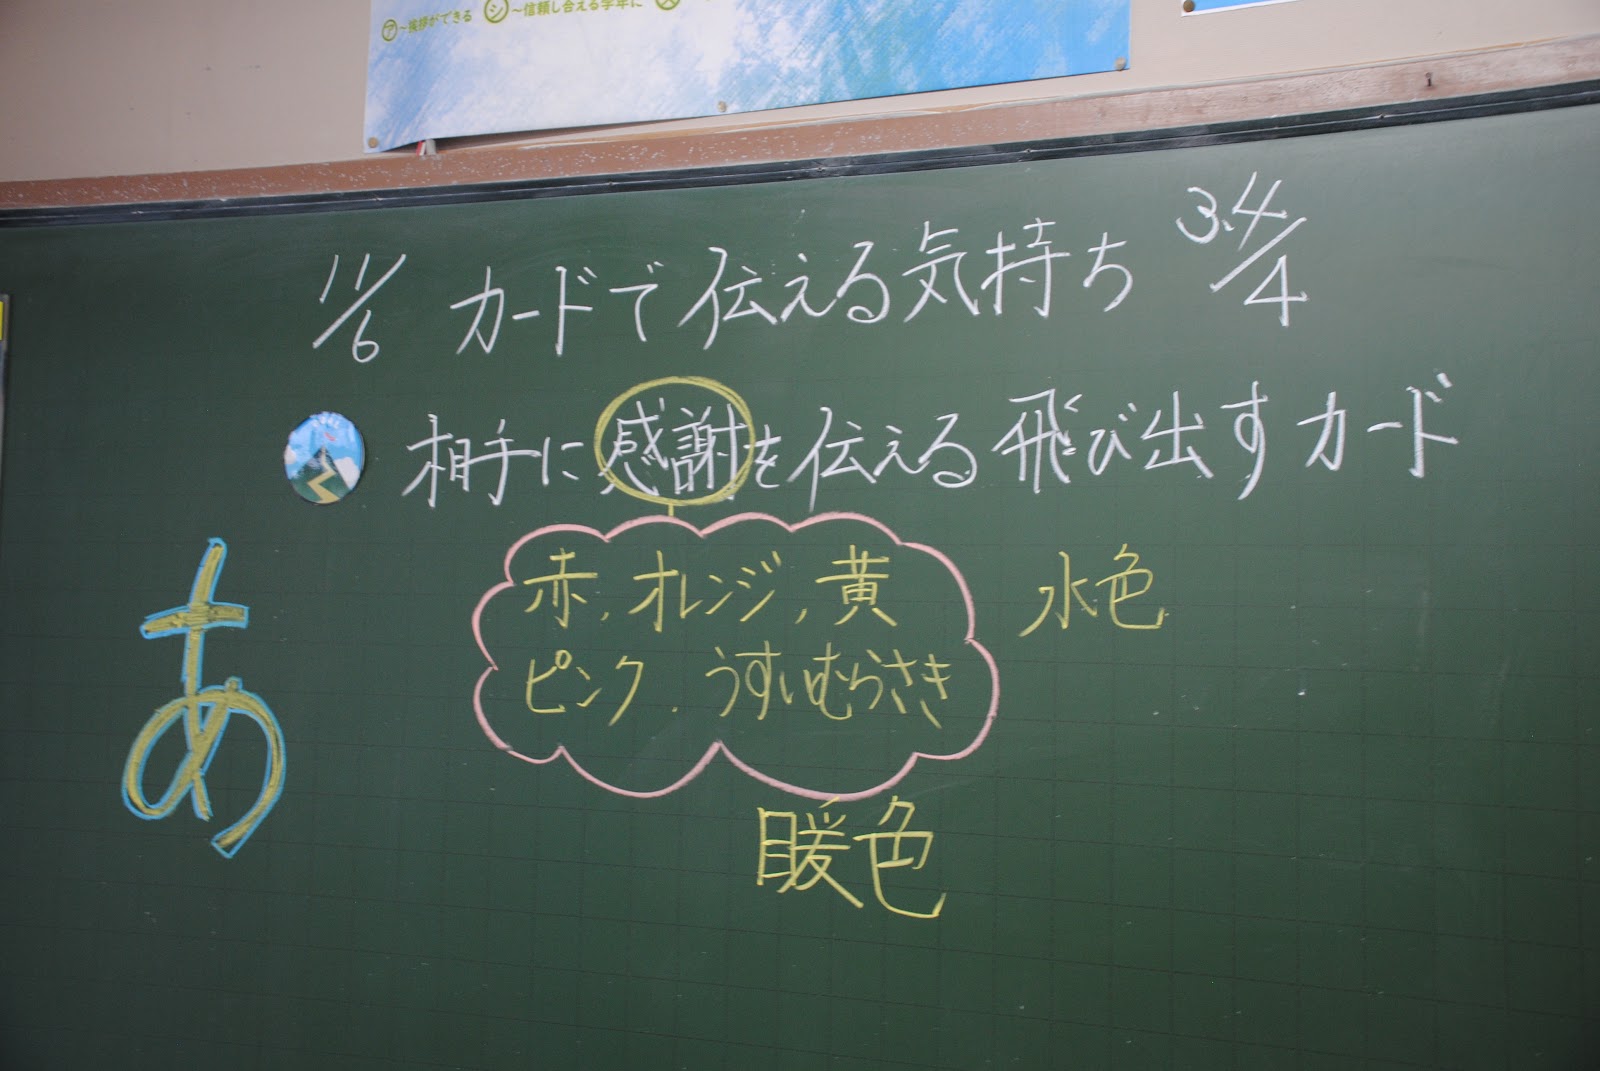 ア～挨拶ができる シ～信頼し合える学年に
11/6 カードで伝える気持ち 3.4/4
相手に感謝を伝える飛び出すカード
赤,オレンジ,黄 水色
ピンク.うすいむらさき
あ
暖色